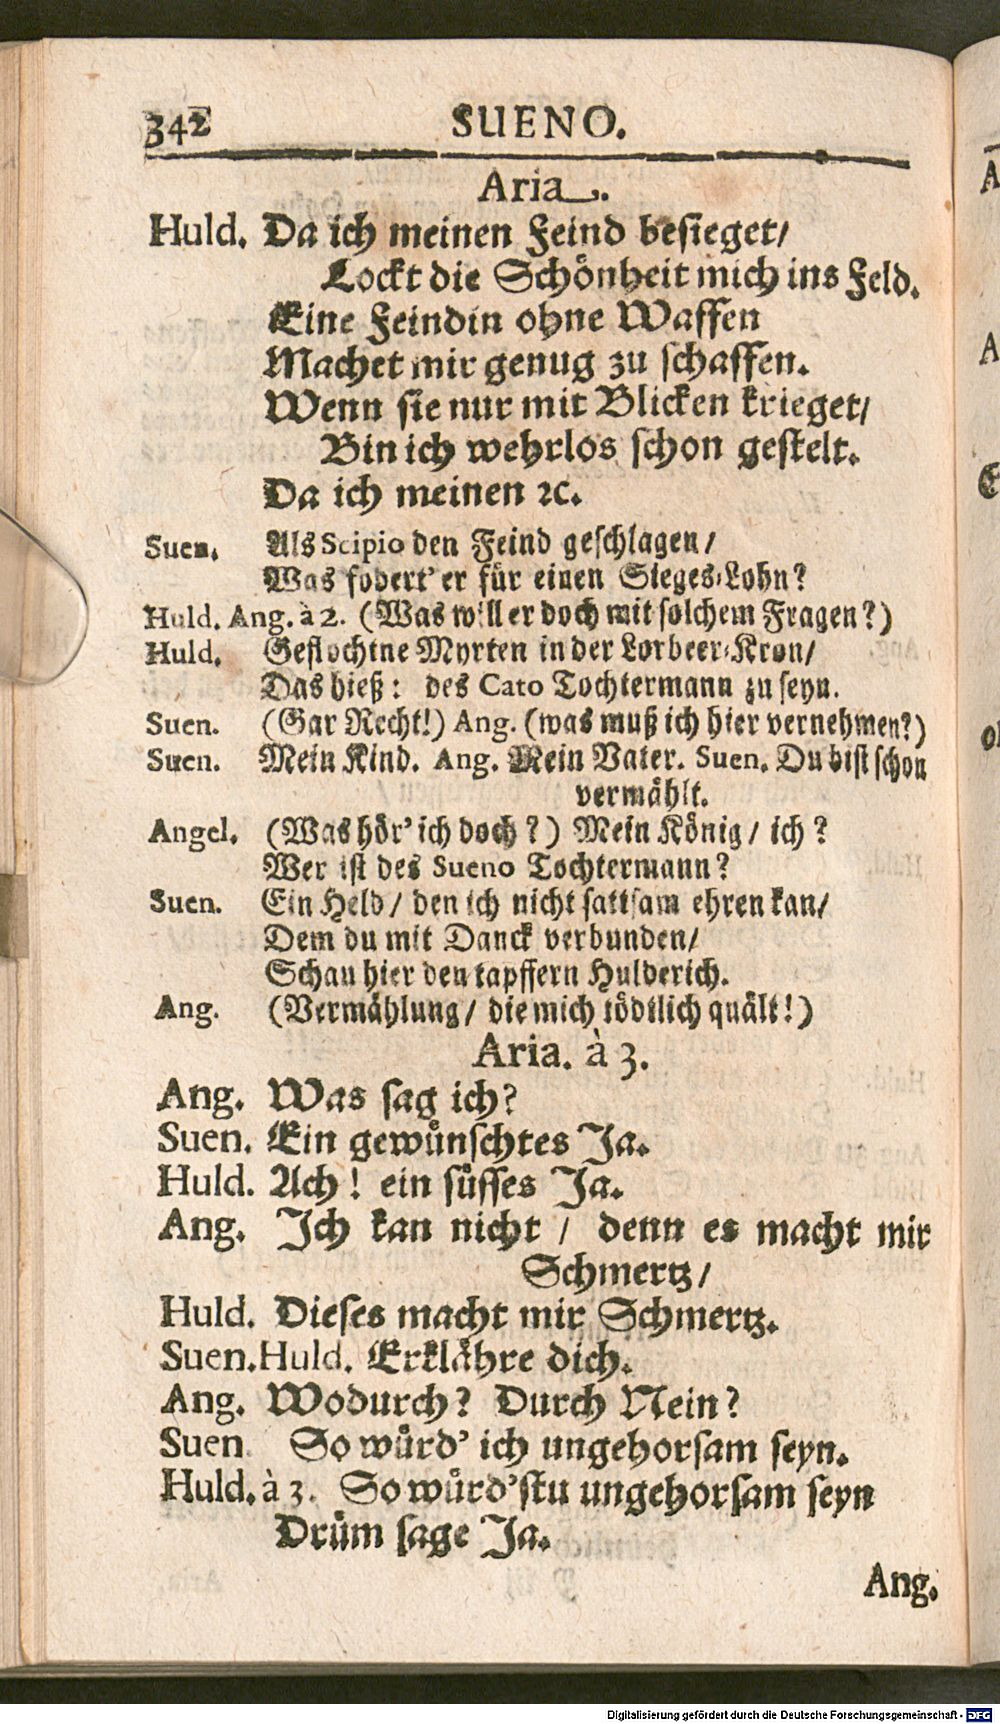 342 SUENO.
Aria.
Huld. Da ich meinen Feind besieget/
Lockt die Schönheit mich ins Feld.
Eine Feindin ohne Waffen
Machet mir genug zu schaffen.
Wenn sie nur mit Blicken krieget/
Bin ich wehrlos schon gestelt.
Da ich meinen ꝛc.
Suen. Als Scipio den Feind geschlagen/
Was fodert' er für einen Sieges-Lohn?
Huld. Ang. à 2. (Was will er doch mit solchem Fragen?)
Huld. Geflochtne Myrten in der Lorbeer-Kron/
Das hieß: des Cato Tochtermann zu seyn.
Suen. (Gar Recht!) Ang. (was muß ich hier vernehmen?)
Suen. Mein Kind. Ang. Mein Vater. Suen. Du bist schon
vermählt.
Angel. (Was hör' ich doch?) Mein König/ ich?
Wer ist des Sueno Tochtermann?
Suen. Ein Held/ den ich nicht sattsam ehren kan/
Dem du mit Danck verbunden/
Schau hier den tapffern Hulderich.
Ang. (Vermählung/ die mich tödtlich quält!)
Aria. à 3.
Ang. Was sag ich?
Suen. Ein gewünschtes Ja.
Huld. Ach! ein süsses Ja.
Ang. Ich kan nicht / denn es macht mir
Schmertz/
Huld. Dieses macht mir Schmertz.
Suen. Huld. Erklähre dich.
Ang. Wodurch? Durch Nein?
Suen So würd' ich ungehorsam seyn.
Huld. à 3. So würd'stu ungehorsam seyn
Drüm sage Ja.
Ang.
Digitalisierung gefördert durch die Deutsche Forschungsgemeinschaft - DFG